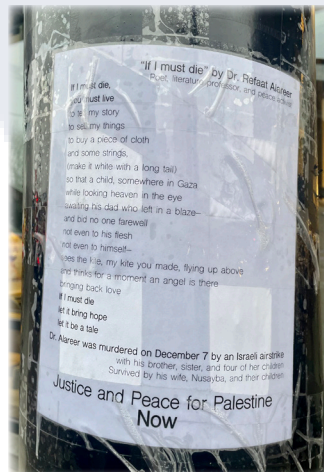 "If I must die" by Dr. Refaat Alareer
Poet, literature professor, and peace activist
If I must die,
you must live
to tell my story
to sell my things
to buy a piece of cloth
and some strings,
(make it white with a long tail)
so that a child, somewhere in Gaza
while looking heaven in the eye
awaiting his dad who left in a blaze—
and bid no one farewell
not even to his flesh
not even to himself—
sees the kite, my kite you made, flying up above
and thinks for a moment an angel is there
bringing back love
If I must die
let it bring hope
let it be a tale
Dr. Alareer was murdered on December 7 by an Israeli airstrike
with his brother, sister, and four of her children
Survived by his wife, Nusayba, and their children
Justice and Peace for Palestine
Now